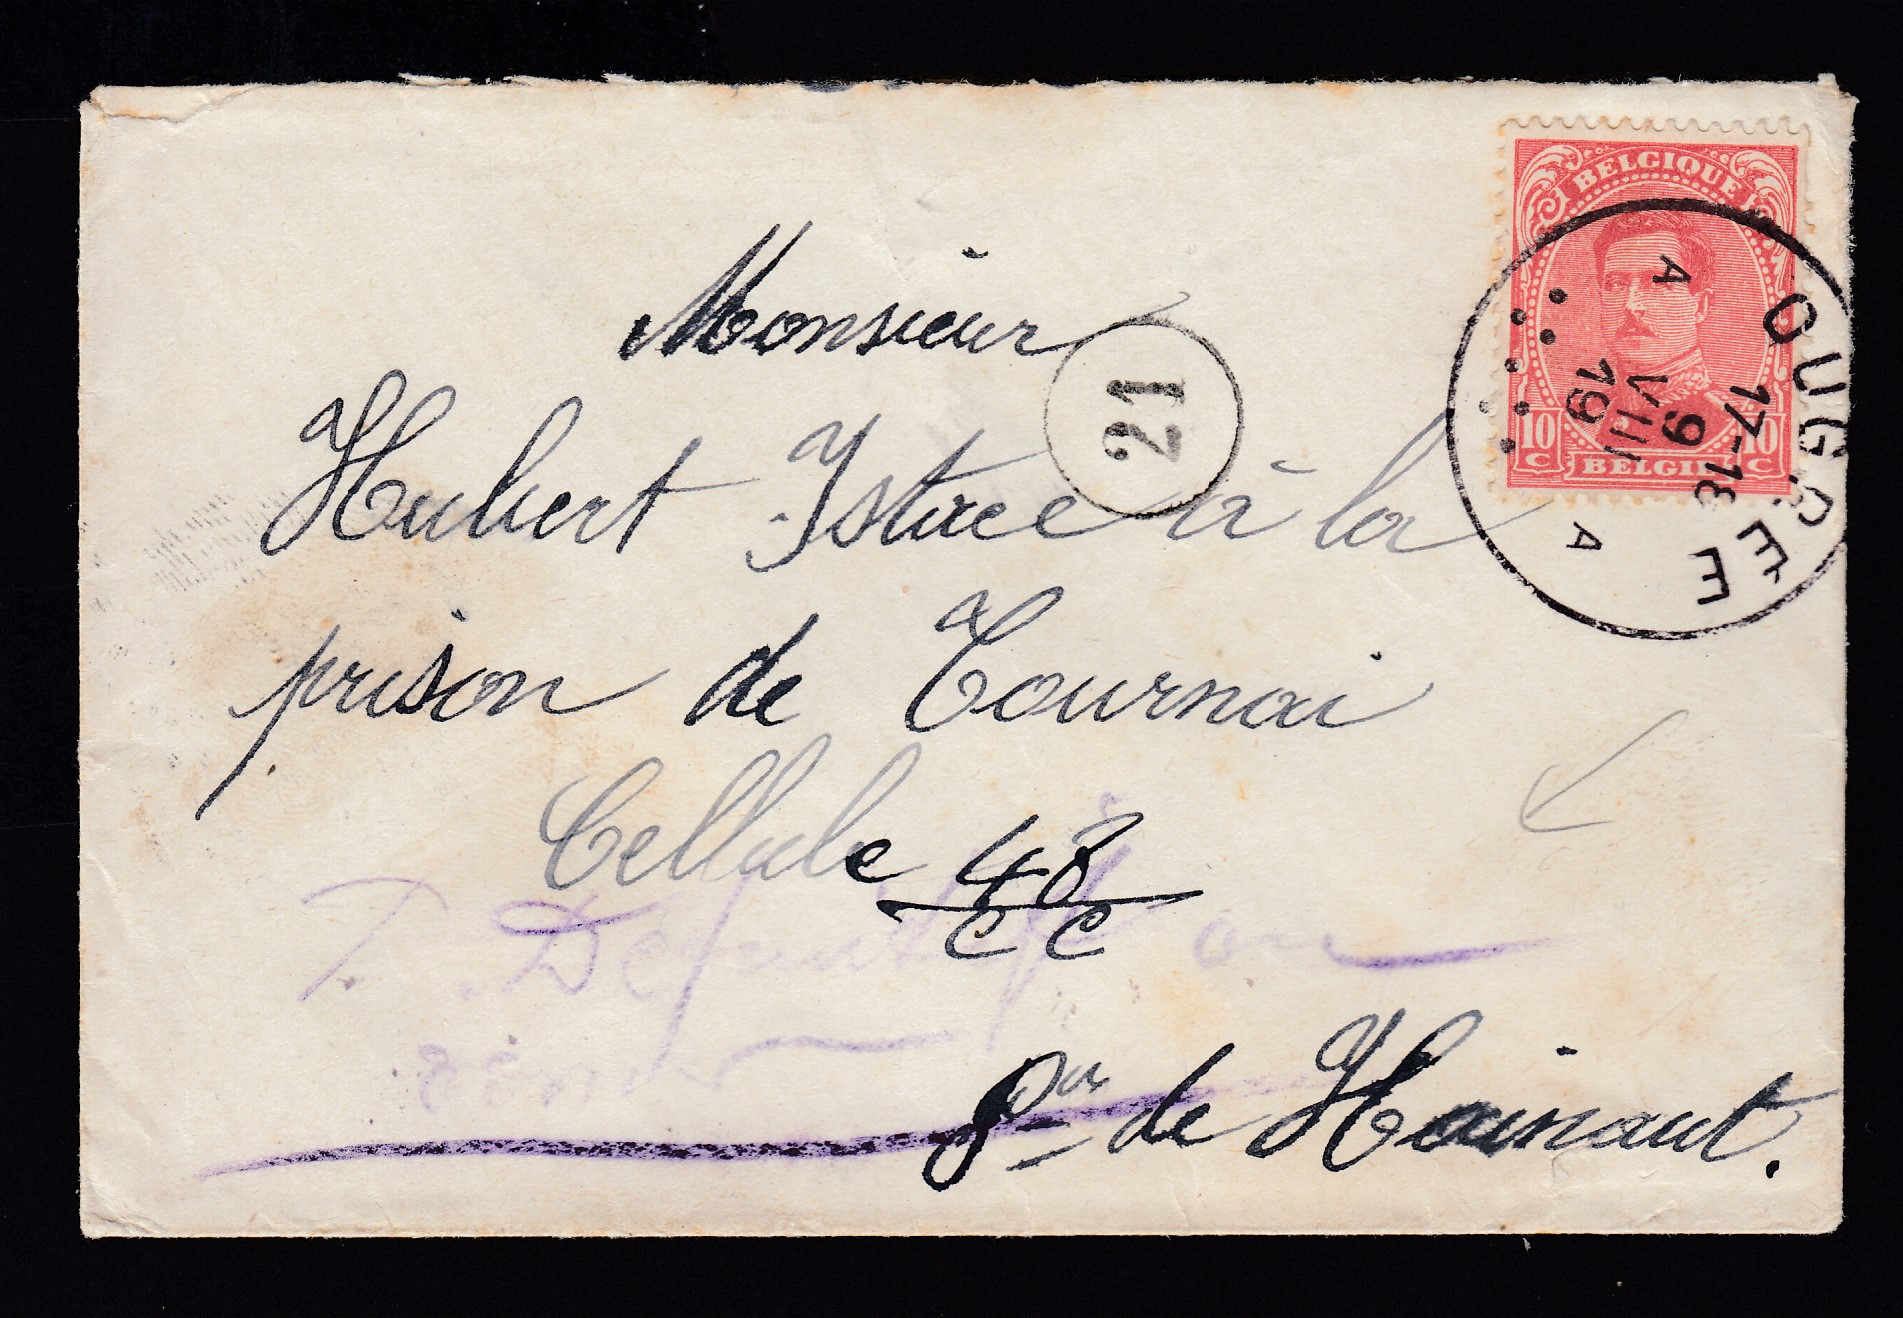 BELGIQUE
10 C 10 C
BELGIË
OUGRÉE
A A
17-18
9
VIII
19
Monsieur
21
Hubert Istace à la
prison de Tournai
Cellule 48
CC
Pce de Hainaut.